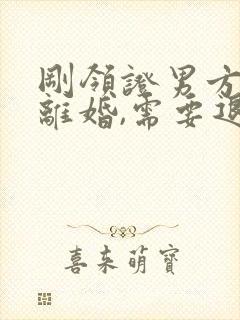 剛領證男方
離婚,需要退
喜来萌寶